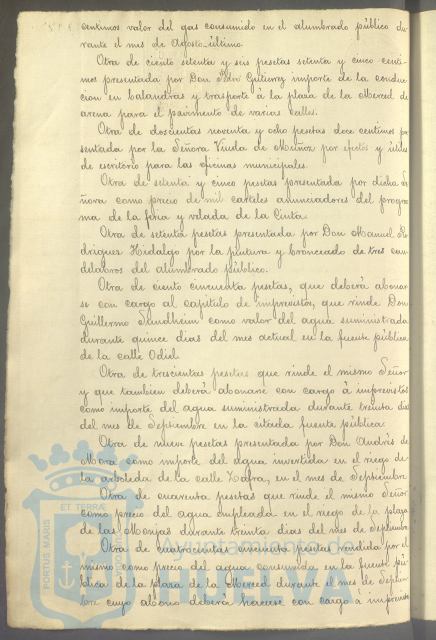 centimos valor del gas consumido en el alumbrado público du-
rante el mes de Agosto último.
Otra de ciento setenta y seis pesetas setenta y cinco centi-
mos presentada por Don Pedro Gutierrez importe de la conduc-
cion en balandras y trasporte á la plaza de la Merced de
arena para el pavimento de varias calles.
Otra de doscientas noventa y ocho pesetas doce centimos pre
sentada por la Señora Viuda de Muñoz por efectos y útiles
de escritorio para las oficinas municipales.
Otra de setenta y cinco pesetas presentada por dicha Se
ñora como precio de mil carteles anunciadores del progra-
ma de la feria y velada de la Cinta.
Otra de setenta pesetas presentada por Don Manuel Ro
driguez Hidalgo por la pintura y bronceado de tres can-
delabros del alumbrado público.
Otra de ciento cincuenta pesetas, que deberá abonar
se con cargo al capitulo de imprevistos, que rinde Don
Guillermo Sundheim como valor del agua suministrada
durante quince dias del mes actual en la fuente pública
de la calle Odiel.
Otra de trescientas pesetas que rinde el mismo Señor
y que tambien deberá abonarse con cargo á imprevistos
como importe del agua suministrada durante treinta dias
del mes de Septiembre en la citada fuente pública.
Otra de nueve pesetas presentada por Don Andrés de
Mora como importe del agua invertida en el riego de
la arboleda de la calle Zafra, en el mes de Septiembre
Otra de cuarenta pesetas que rinde el mismo Señor
como precio del agua empleada en el riego de la plaza
de las Monjas durante treinta dias del mes de Septiembre
Otra de cuatrocientas cincuenta pesetas rendida por el
mismo como precio del agua consumida en la fuente pú-
blica de la plaza de la Merced durante el mes de Septiem-
bre cuyo abono deberá hacerse con cargo á imprevistos
PORTUS MARIS
ET TERRÆ
Ayuntamiento de
HUELVA